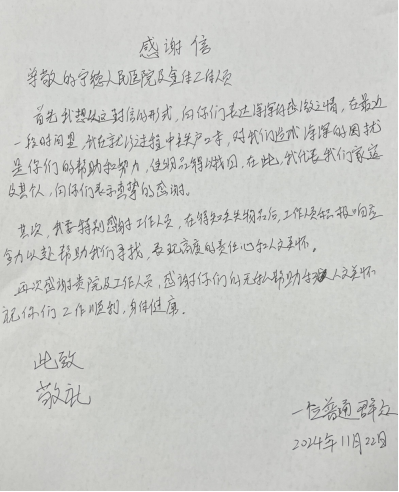 感谢信
尊敬的宁德人民医院及全体工作人员
首先我想以这封信的形式，向你们表达深深的感激之情，在最近
一段时间里，我在就诊过程中丢失户口本，对我们造成深深的困扰
是你们的帮助和努力，使物品得以找回，在此，我代表我们家庭
及其个人，向你们表示真挚的感谢。
其次，我要特别感谢工作人员，在得知丢失物品后，工作人员积极响应
全力以赴帮助我们寻找，表现高度的责任心和人文关怀。
再次感谢贵院及工作人员，感谢你们的无私帮助与人文关怀
祝你们工作顺利，身体健康。
此致
敬礼
一位普通群众
2024年11月22日